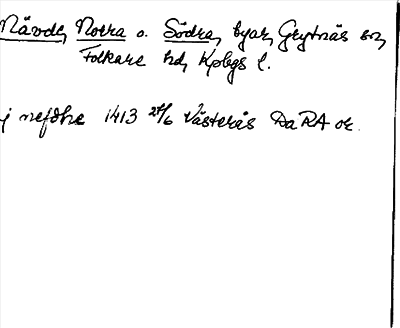 Nävde, Norra o. Södra, byar, Grytnäs sn,
Folkare hd, Kpbgs l.
j nefdhe 1413 27/6 Västerås DaRA or.